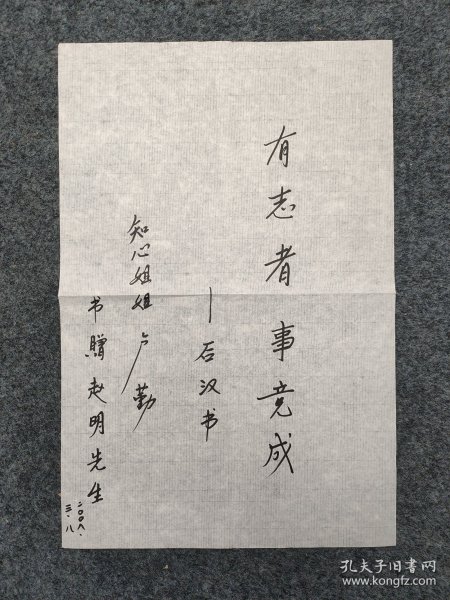 有志者事竞成
—后汉书
知心姐姐 卢勤
书赠赵明先生
二〇〇八.
三.八
孔夫子旧书网
www.kongfz.com